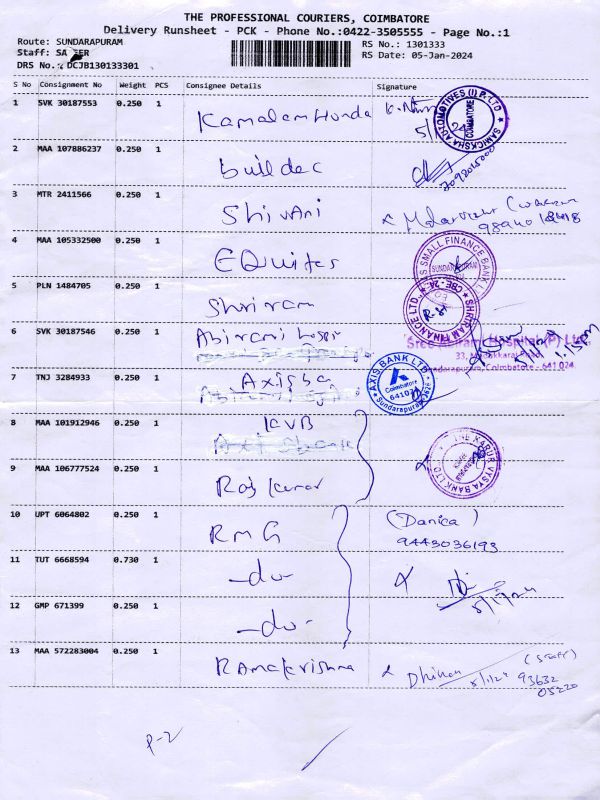 THE PROFESSIONAL COURIERS, COIMBATORE
Delivery Runsheet - PCK - Phone No.:0422-3505555 - Page No.:1
Route: SUNDARAPURAM
RS No.: 1301333
Staff:
RS Date: 05-Jan-2024
DRS No.: DCJB130133301
S No Consignment No Weight PCS Consignee Details Signature
1 SVK 30187553 0.250 1 Kamalam Honda
2 MAA 107886237 0.250 1 buildec
3 MTR 2411566 0.250 1 Shivani
4 MAA 105332500 0.250 1 EQuitas
5 PLN 1484705 0.250 1 Shriram
6 SVK 30187546 0.250 1 Abirami
7 TNJ 3284933 0.250 1 Axisba
8 MAA 101912946 0.250 1 KVB
9 MAA 106777524 0.250 1 Raj Kumar
10 UPT 6064802 0.250 1 RMG (Danica)
9443036193
11 TUT 6668594 0.730 1 -do- 5/1/24
12 GMP 671399 0.250 1 -do-
13 MAA 572283004 0.250 1 Ramakrishna Dhinon 5/1/24 (Staff)
93632
05220
COIMBATORE
SMALL FINANCE BANK
SUNDARAPURAM
SHRIRAM FINANCE LTD.
CBE-24
AXIS BANK LTD
Coimbatore
641024
Sundarapuram
THE KARUR VYSYA BANK LTD
Coimbatore - 641 024
P-2